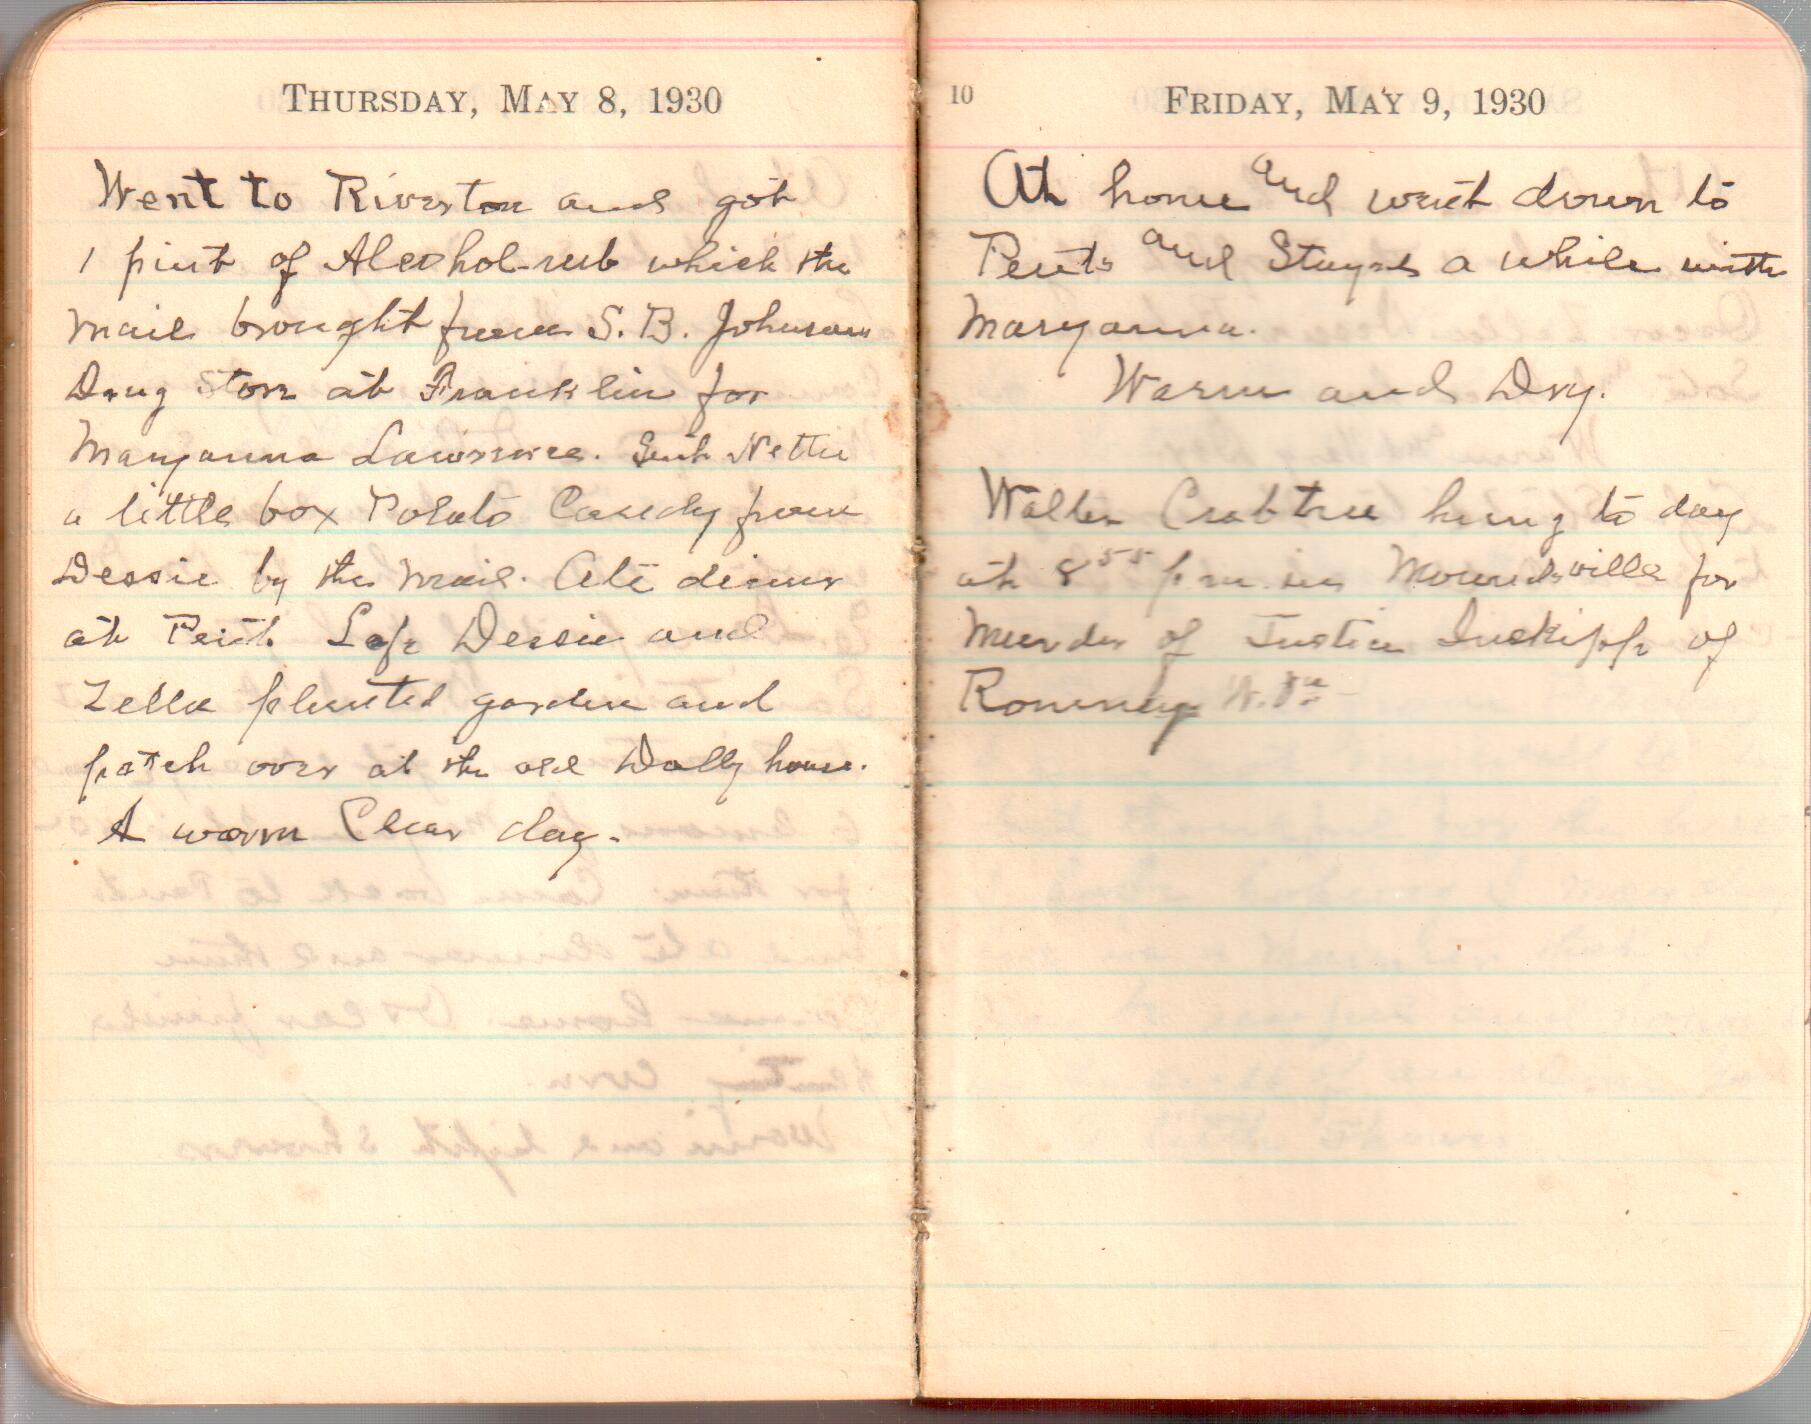 THURSDAY, MAY 8, 1930
Went to Riverton and got
1 pint of Alcohol-rub which the
mail brought from S. B. Johnsons
Drug Store at Franklin for
Maryanna Lawrence. Sent Nettie
a little box Potato Candy from
Dessie by the mail. Ate dinner
at Pent. Dessie and
Zella planted garden and
patch over at the old Dolly house.
A warm Clear day.
10
FRIDAY, MAY 9, 1930
At home and went down to
Pents and Stayed a while with
Maryanna.
Warm and Dry.
Walter Crabtree hung to day
at 8 55 p m in Moundsville for
Murder of Justice Inskipp of
Romney W. Va